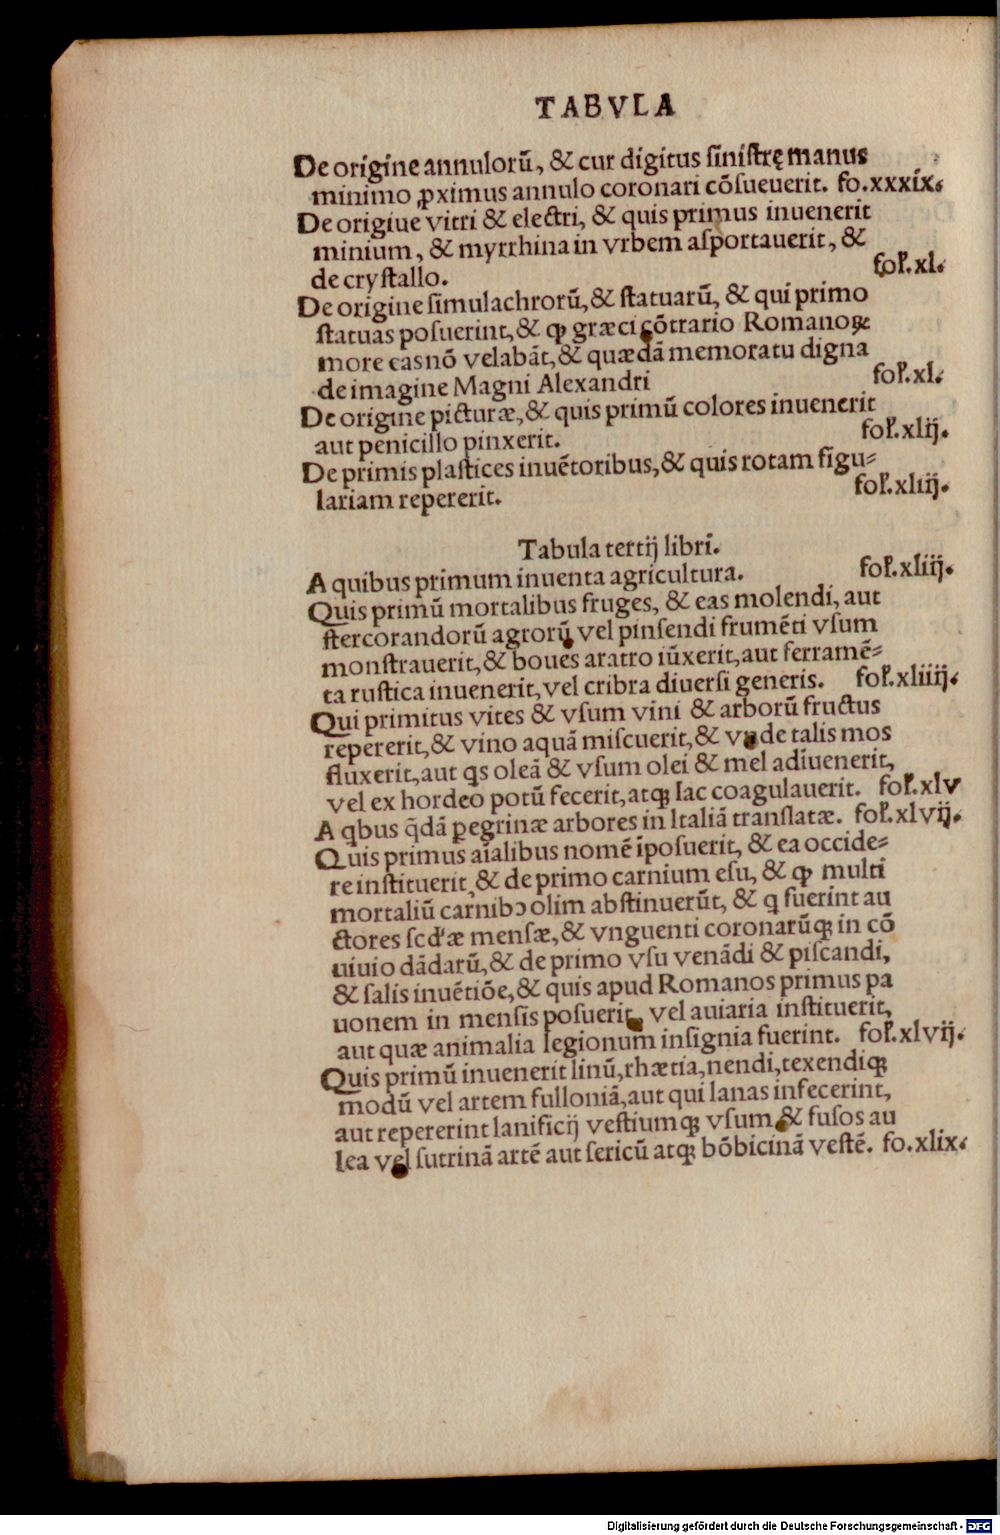 TABVLA
De origine annulorū, & cur digitus siniſtrę manus
minimo ꝓximus annulo coronari cōſueuerit. fo.xxxix.
De origiue vitri & electri, & quis primus inuenerit
minium, & myrrhina in vrbem aſportauerit, &
de cryſtallo. fol.xl.
De origine ſimulachrorū, & ſtatuarū, & qui primo
ſtatuas poſuerint, & ꝙ græci cōtrario Romanoꝝ
more casnō velabāt, & quædā memoratu digna
de imagine Magni Alexandri fol.xl.
De origine picturæ, & quis primū colores inuenerit
aut penicillo pinxerit. fol.xlij.
De primis plaſtices inuētoribus, & quis rotam figu⸗
lariam repererit. fol.xliij.
Tabula tertij libri.
A quibus primum inuenta agricultura. fol.xliij.
Quis primū mortalibus fruges, & eas molendi, aut
ſtercorandorū agrorū, vel pinſendi frumēti vſum
monſtrauerit, & boues aratro iūxerit, aut ferramē⸗
ta ruſtica inuenerit, vel cribra diuerſi generis. fol.xliiij.
Qui primitus vites & vſum vini & arborū fructus
repererit, & vino aquā miſcuerit, & vnde talis mos
fluxerit, aut qs oleā & vſum olei & mel adiuenerit,
vel ex hordeo potū fecerit, atqꝫ lac coagulauerit. fol.xlv
A qbus q̄dā ꝑegrinæ arbores in Italiā tranſlatæ. fol.xlvij.
Quis primus aīalibus nomē īpoſuerit, & ea occide⸗
re inſtituerit, & de primo carnium eſu, & ꝙ multi
mortaliū carnibꝰ olim abſtinuerūt, & q fuerint au
ctores ſcd'æ menſæ, & vnguenti coronarūqꝫ in cō
uiuio dādarū, & de primo vſu venādi & piſcandi,
& ſalis inuētiōe, & quis apud Romanos primus pa
uonem in menſis poſuerit, vel auiaria inſtituerit,
aut quæ animalia legionum inſignia fuerint. fol.xlvij.
Quis primū inuenerit linū, rhætia, nendi, texendiqꝫ
modū vel artem fulloniā, aut qui lanas infecerint,
aut repererint lanificij veſtiumqꝫ vſum & fuſos au
lea vel ſutrinā artē aut ſericū atqꝫ bōbicinā veſtē. fo.xlix.
Digitalisierung gefördert durch die Deutsche Forschungsgemeinschaft - DFG